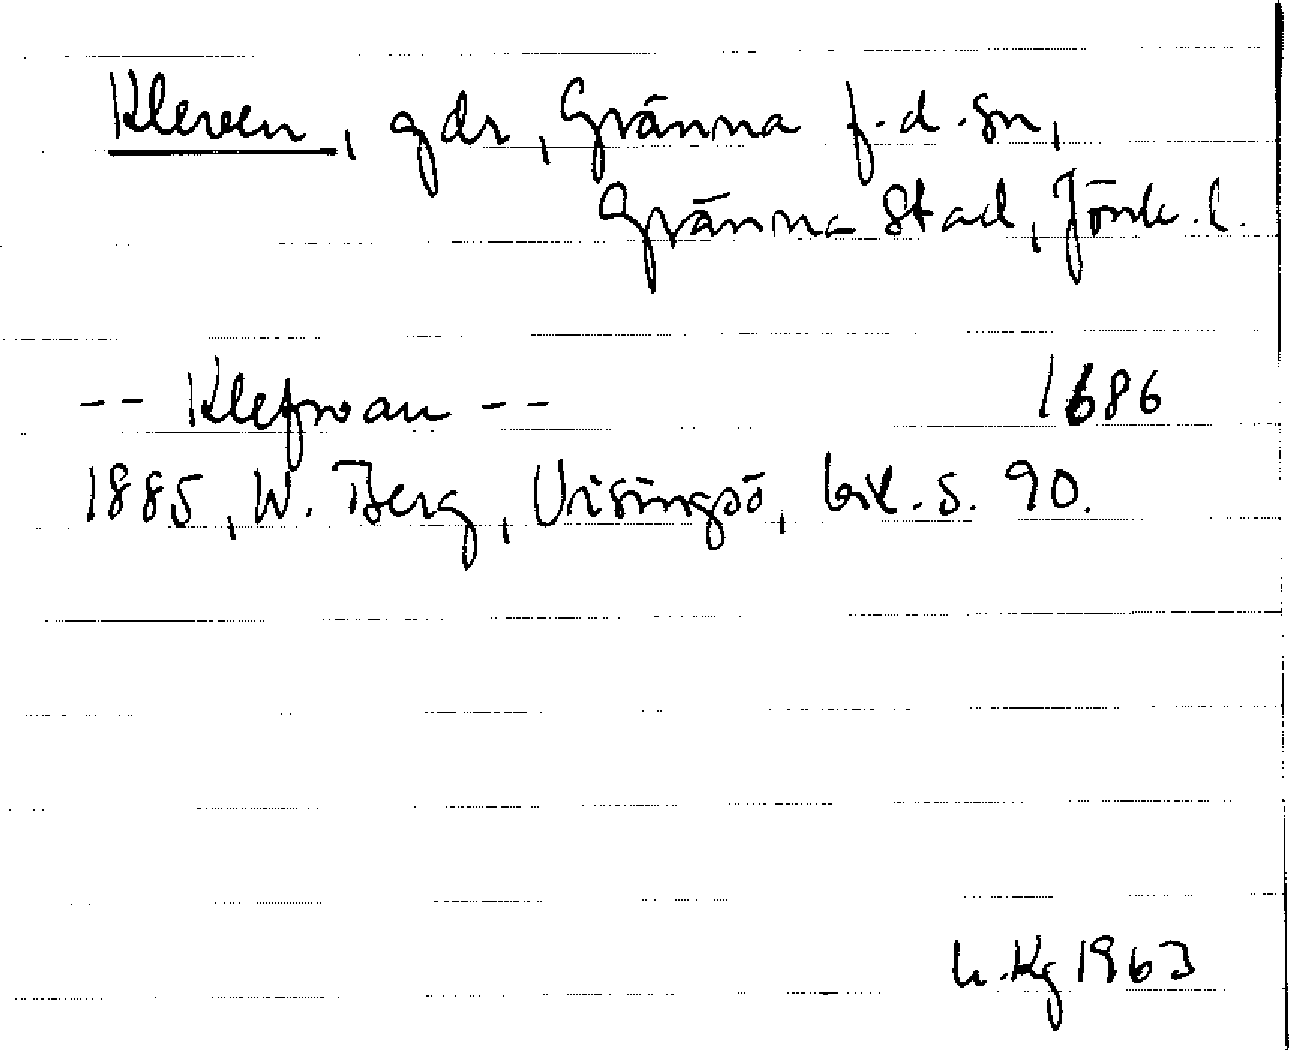 Kleven, gdr, Gränna f.d. sn,
Gränna stad, Jönk. l.
-- Klefwan -- 1686
1885, W. Berg, Visingsö, bil. s. 90.
h. Kg 1963